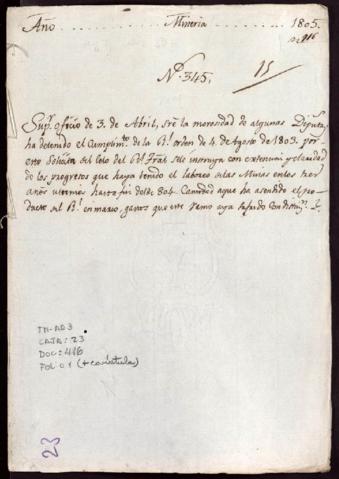 Año ........ Mineria ........ 1805.
nº 416
Nº. 345.
15/
Supr. oficio de 3. de Abril, sre. la morosidad de algunas Diputa.
ha detenido el Cumplim.to de la Rl. orden de 4. de Agosto de 1803. por-
esto Solicita el Celo del Rl. Tral. se le instruya con extension y claridad
de los progresos que haya tenido el laboreo de las Minas en los tres
años ultimos hasta fin del de 804. Cantidad a que ha asendido el pro-
ducto del Rl. en marco, gastos que este Remo aya
TM-AD3
CAJA: 23
DOC: 416
FOL: 01 (+ carátula)
23